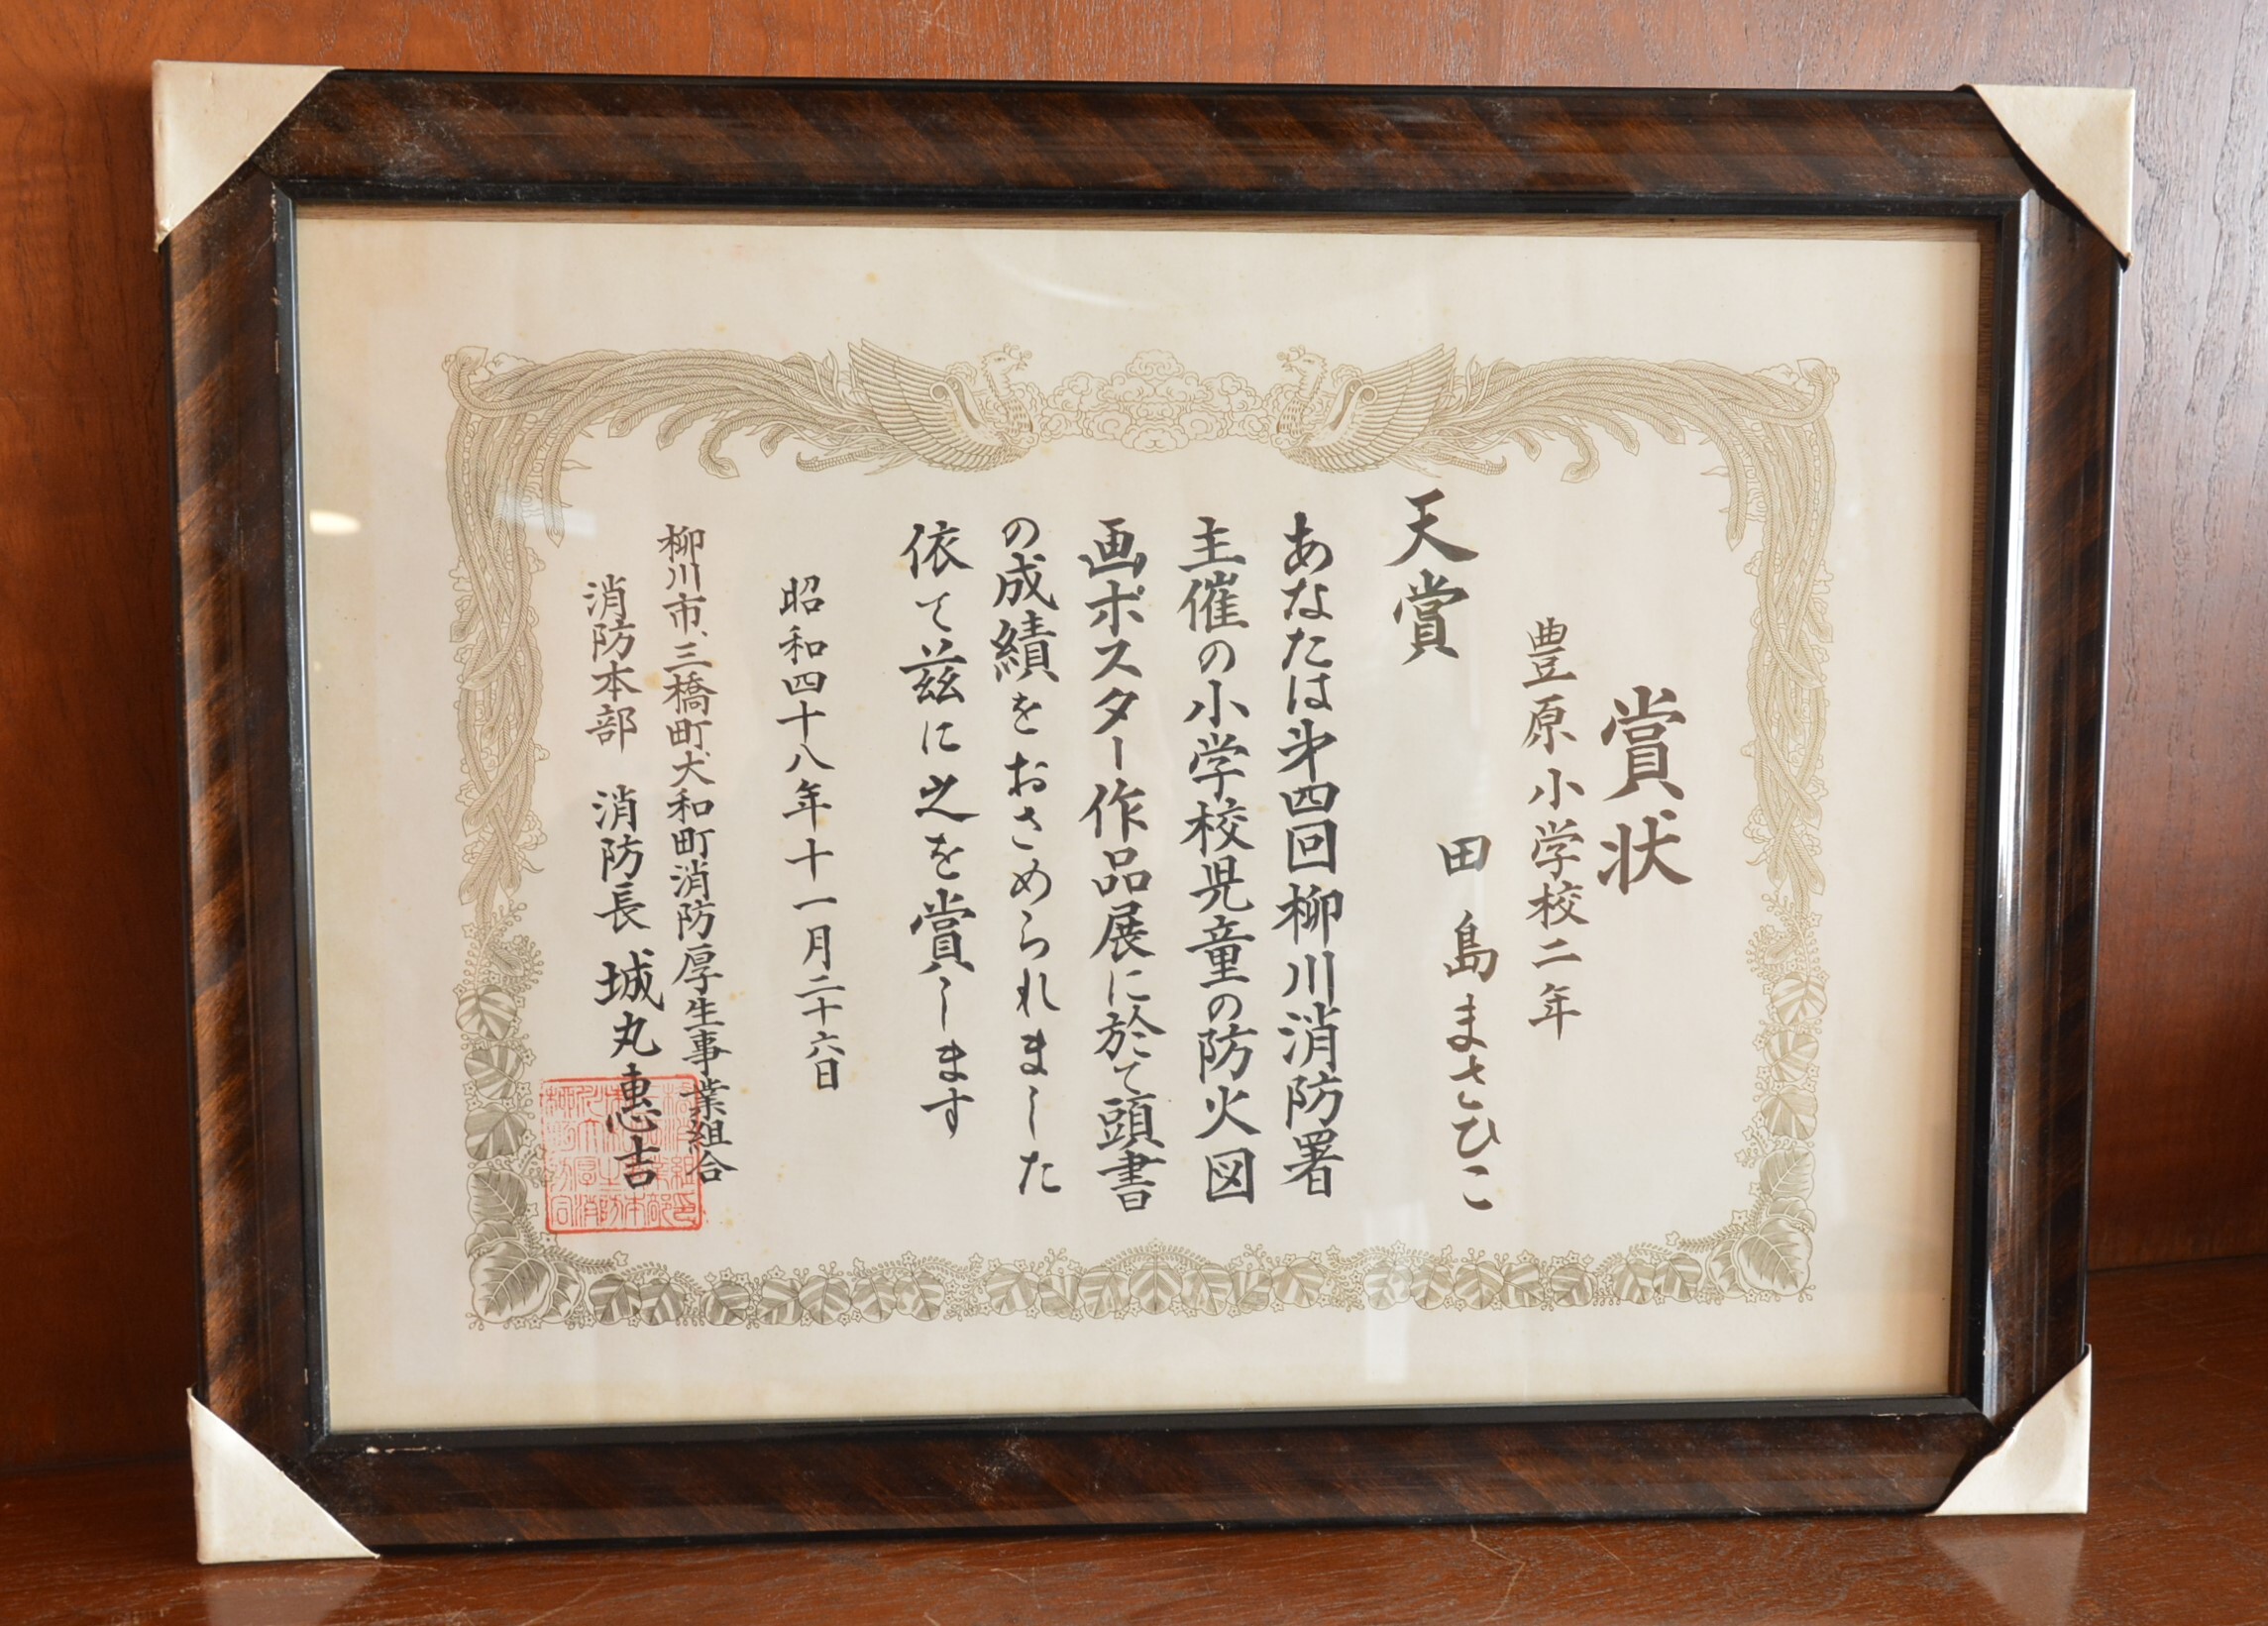 賞状
豊原小学校二年
田島まさひこ
天賞
あなたは㐧四回柳川消防署
主催の小学校児童の防火図
画ポスター作品展に於て頭書
の成績をおさめられました
依て茲に之を賞します
昭和四十八年十一月二十六日
柳川市、三橋町犬和町消防厚生事業組合
消防本部 消防長 城丸惠吉